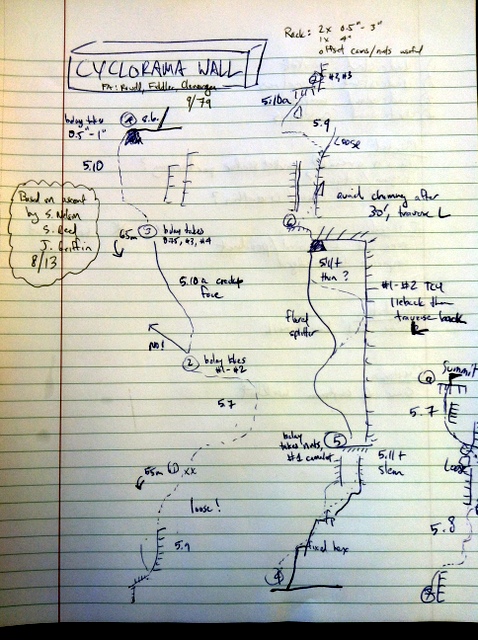 Rack: 2x 0.5" - 3"
1x 4"
offset cams/nuts useful
CYCLORAMA WALL
FA: Rowell, Fiddler,
9/79
belay takes
0.5" - 1"
4
5.10
Based on ascent
by S. Nelson
S. Reed
J. Griffin
8/13
65m
3
belay takes
0.75, #3, #4
5.10a crack up
face
NO!
2
belay takes
#1 - #2
5.7
55m
xx
loose!
5.9
7
#2, #3
5.10a
5.9
Loose
avoid chimney after
30', traverse L
6
5.11+
thin?
#1 - #2 TCU
lieback then
traverse back
Flared
splitter
belay
takes nuts,
#1 camalot
5
5.11+
stem
fp
fixed hex
4
Summit
9
5.7
Loose
5.8
8